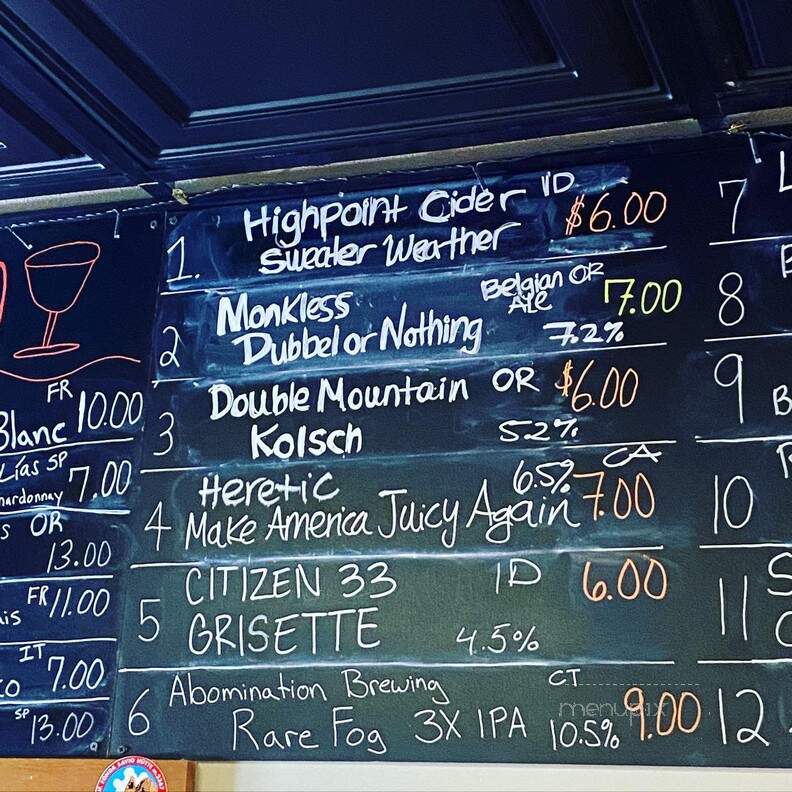 FR
Blanc 10.00
Lías SP
7.00
OR
13.00
FR 11.00
IT
7.00
SP
13.00
1. Highpoint Cider ID $6.00
Sweater Weather
2 Monkless Belgian OR
Ale 7.00
Dubbel or Nothing 7.2%
3 Double Mountain OR $6.00
Kolsch 5.2%
4 Heretic 6.5% CA
Make America Juicy Again 7.00
5 CITIZEN 33 ID 6.00
GRISETTE 4.5%
6 Abomination Brewing CT
Rare Fog 3X IPA 10.5% 9.00
7
8
9
10
11
12
menupix